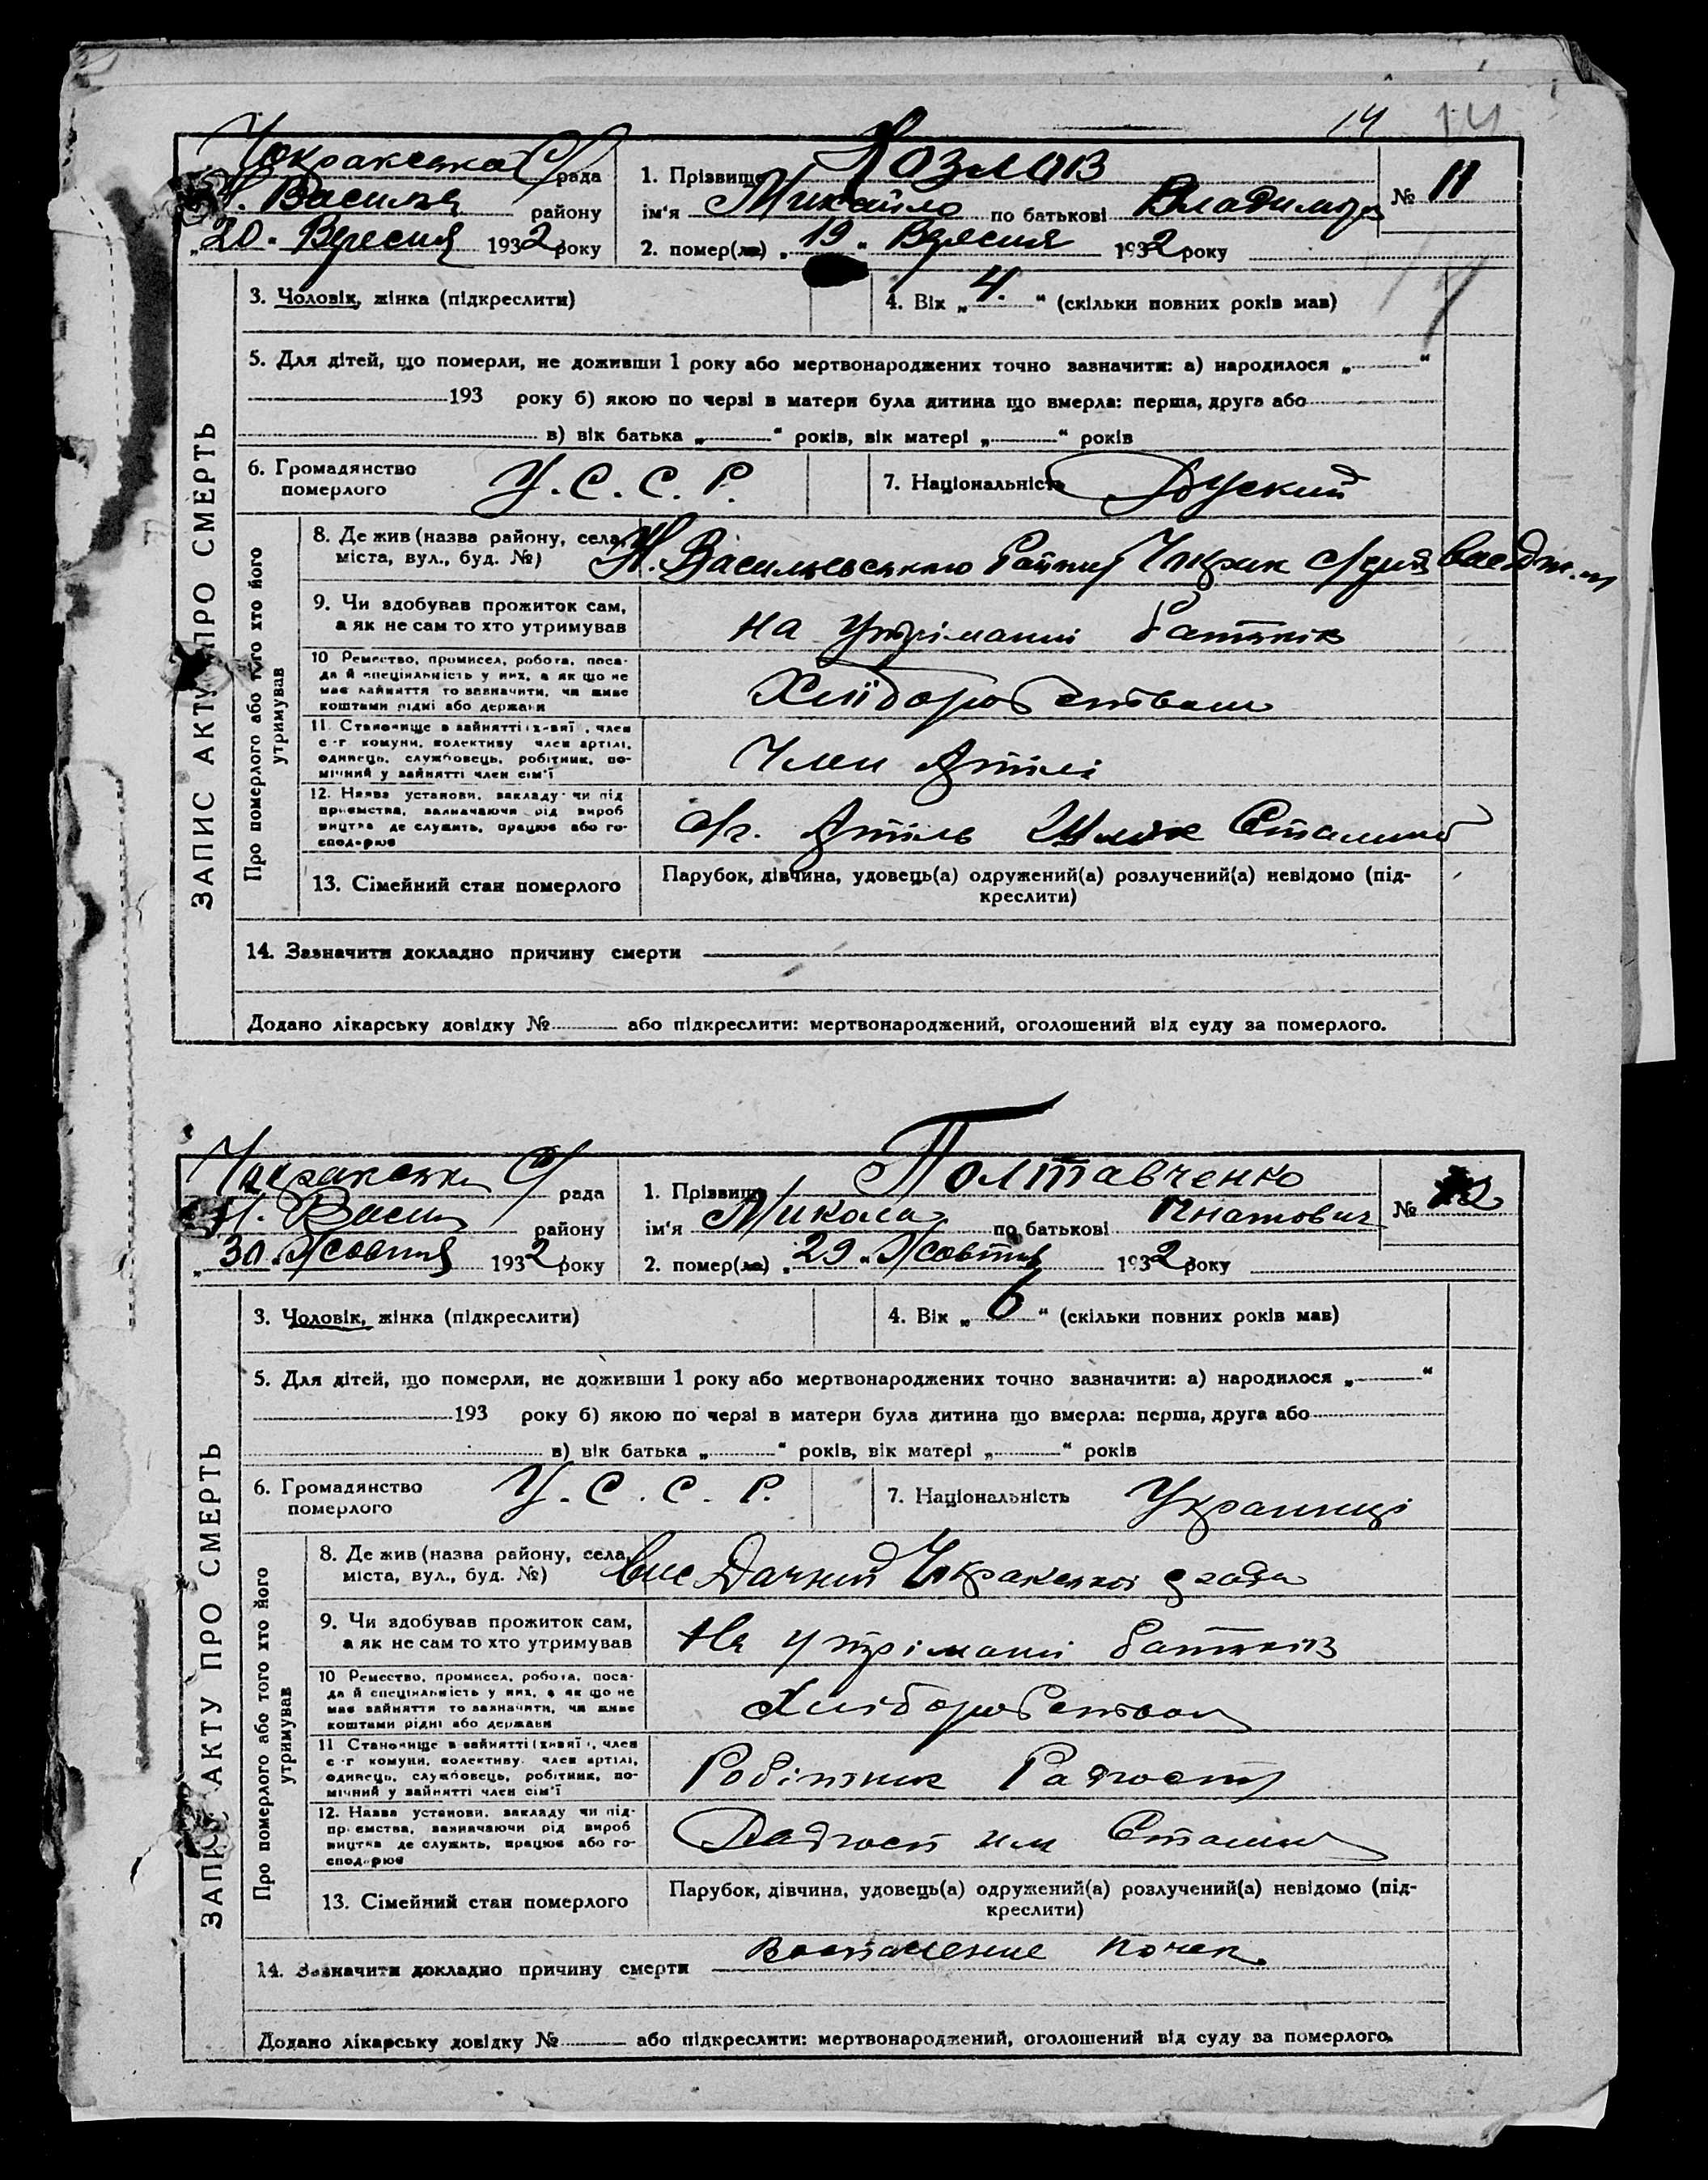 14 14
Чокракська С/рада
Н. Васильв району
„20“ Вересня 1932 року
1. Прізвище Козлов
ім'я Михайло по батькові Владимир
№ 11
2. помер(ла) „19“ Вересня 1932 року
3. Чоловік, жінка (підкреслити)
4. Вік „4.“ (скільки повних років мав)
5. Для дітей, що померли, не доживши 1 року або мертвонароджених точно зазначити: а) народилося „ “
193 року б) якою по черзі в матери була дитина що вмерла: перша, друга або
в) вік батька „ “ років, вік матері „ “ років
6. Громадянство
померлого
У. С. С. Р.
7. Національність Руский
ЗАПИС АКТУ ПРО СМЕРТЬ
Про померлого або того хто його
утримував
8. Де жив (назва району, села,
міста, вул., буд. №)
Н. Васильевського Району Чокрак с/ради
9. Чи здобував прожиток сам,
а як не сам то хто утримував
на утріманні батьків
10 Ремество, промисел, робота, поса-
да й спеціяльність у них, а як що не
має зайняття то зазначити, чи живе
коштами рідні або держави
Хліборобством
11. Становище в зайнятті (хазяї, член
с-г комуни, колективу член артілі,
одинець, службовець, робітник, по-
мічний у зайнятті член сім'ї
Член Артілі
12. Назва установи, закладу чи під
приємства, зазначаючи рід вироб
ництва де служить, працює або го-
сподарює
с/г. Артіль Шлях Сталина
13. Сімейний стан померлого
Парубок, дівчина, удовець(а) одружений(а) розлучений(а) невідомо (під-
креслити)
14. Зазначити докладно причину смерти
Додано лікарську довідку № або підкреслити: мертвонароджений, оголошений від суду за померлого.
Чокракська С/рада
Н. Васил району
„30“ Жовтня 1932 року
1. Прізвище Полтавченко
ім'я Микола по батькові Гнатович
№ 12
2. помер(ла) „29“ Жовтня 1932 року
3. Чоловік, жінка (підкреслити)
4. Вік „6“ (скільки повних років мав)
5. Для дітей, що померли, не доживши 1 року або мертвонароджених точно зазначити: а) народилося „ “
193 року б) якою по черзі в матери була дитина що вмерла: перша, друга або
в) вік батька „ “ років, вік матері „ “ років
6. Громадянство
померлого
У. С. С. Р.
7. Національність Українці
ЗАПИС АКТУ ПРО СМЕРТЬ
Про померлого або того хто його
утримував
8. Де жив (назва району, села,
міста, вул., буд. №)
вис Дачний Чокракської ради
9. Чи здобував прожиток сам,
а як не сам то хто утримував
На утріманні батьків
10 Ремество, промисел, робота, поса-
да й спеціяльність у них, а як що не
має зайняття то зазначити, чи живе
коштами рідні або держави
Хліборобством
11 Становище в зайнятті (хазяї, член
с-г комуни, колективу, член артілі,
одинець, службовець, робітник, по-
мічний у зайнятті член сім'ї
Робітник Радгоспу
12. Назва установи, закладу чи під-
приємства, зазначаючи рід вироб
ництва де служить, працює або го-
сподарює
Радгосп им Сталина
13. Сімейний стан померлого
Парубок, дівчина, удовець(а) одружений(а) розлучений(а) невідомо (під-
креслити)
14. Зазначити докладно причину смерти Воспаление почек
Додано лікарську довідку № або підкреслити: мертвонароджений, оголошений від суду за померлого.